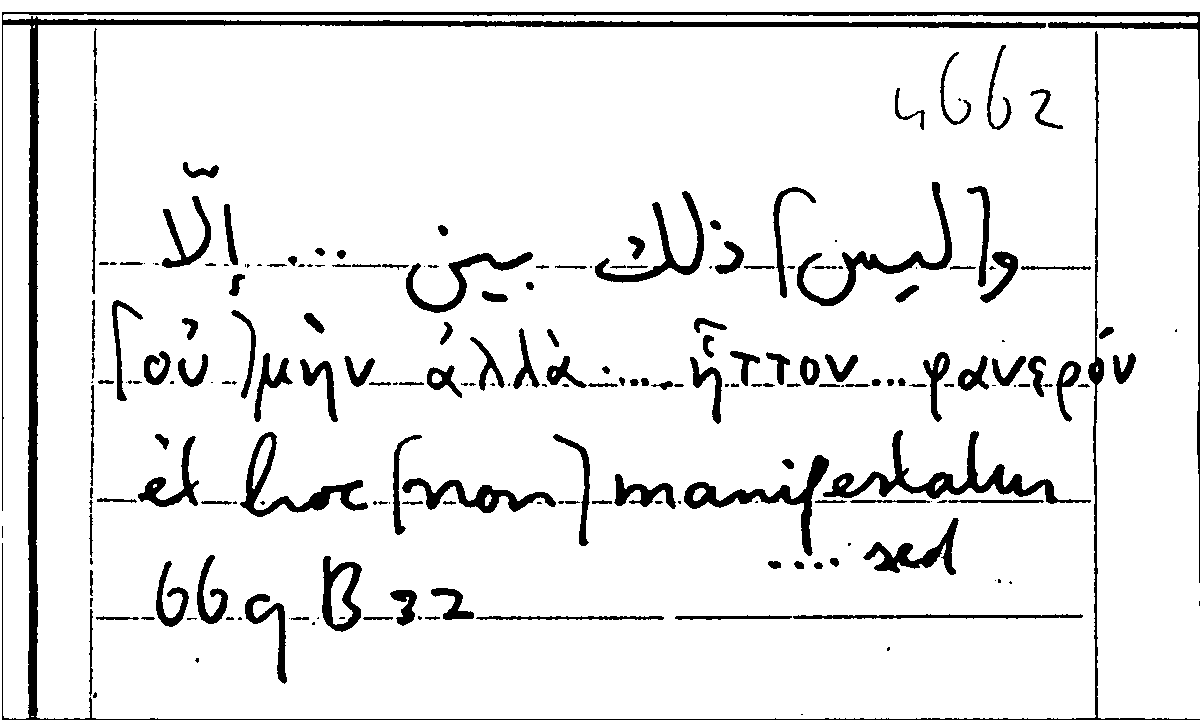 4662
و[ليس] ذلك بين ... إلّا
[οὐ] μὴν ἀλλὰ ..... ἧττον ... φανερόν
et hoc [non] manifestatur
.... sed
669 B 32